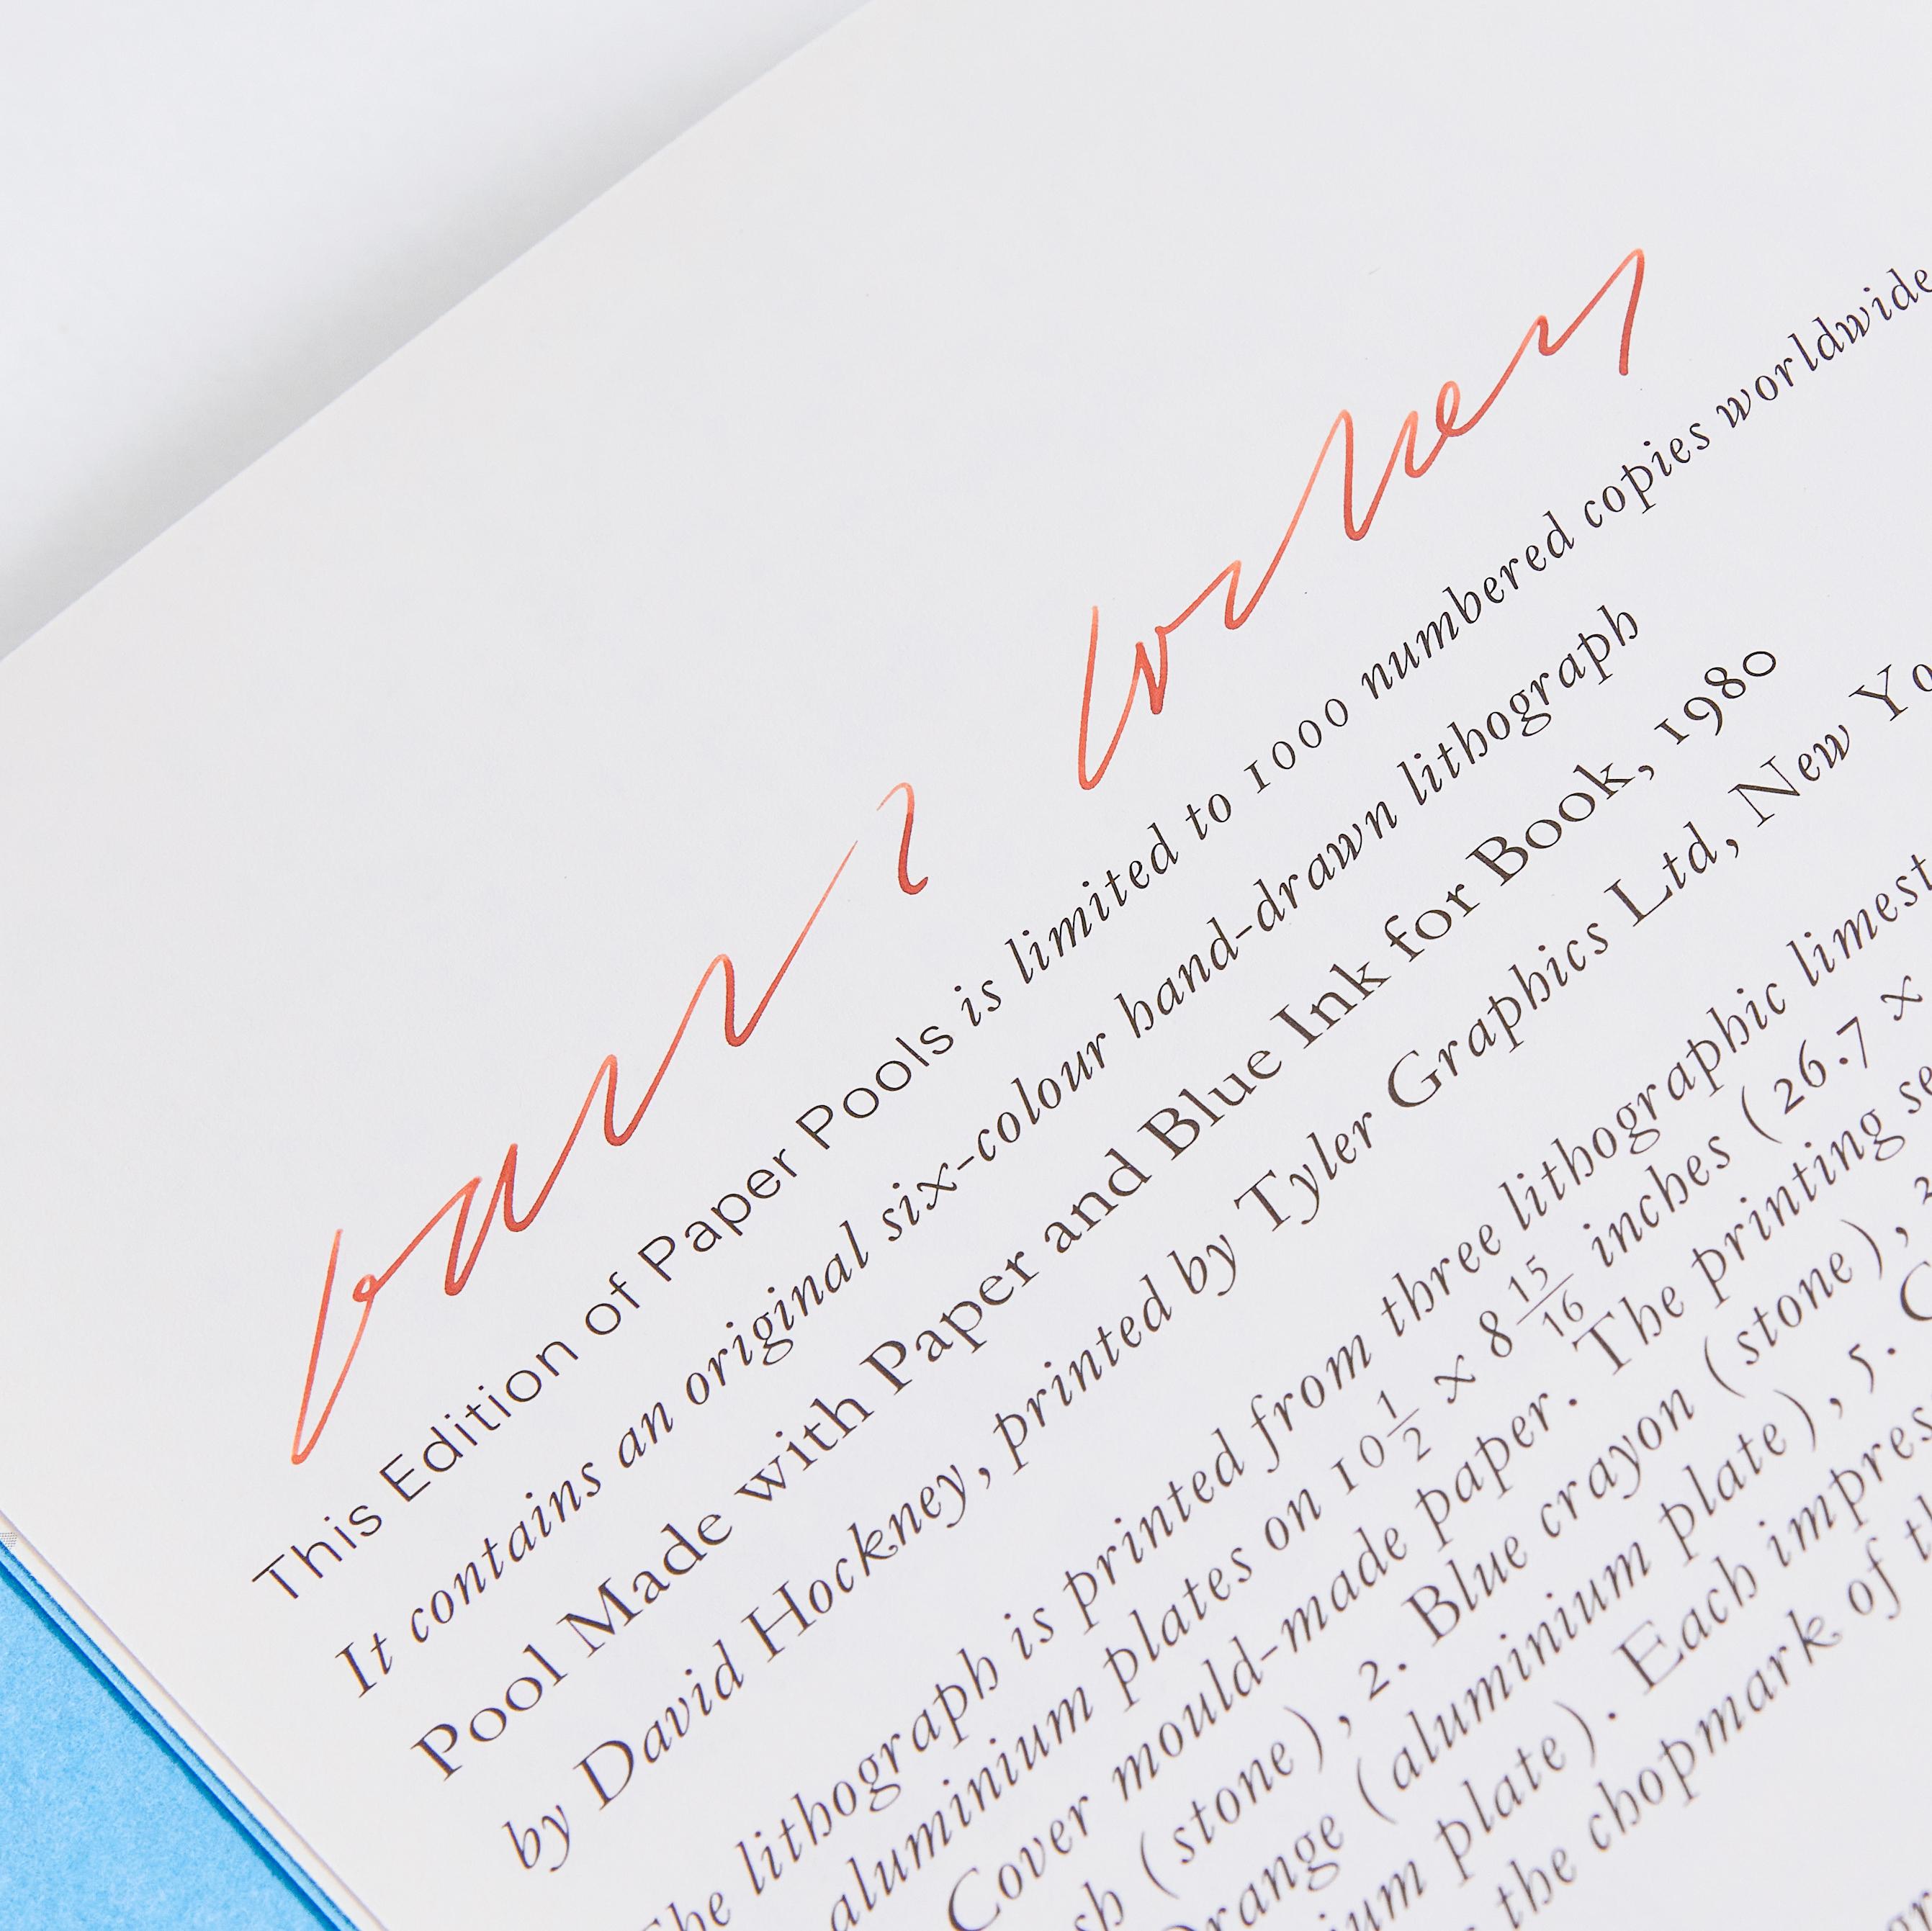 David Hockney
This Edition of Paper Pools is limited to 1000 numbered copies worldwide
It contains an original six-colour hand-drawn lithograph
Pool Made with Paper and Blue Ink for Book, 1980
by David Hockney, printed by Tyler Graphics Ltd, New Yo
The lithograph is printed from three lithographic limest
aluminium plates on 10 1/2 x 8 15/16 inches (26.7 x
Cover mould-made paper. The printing se
sh (stone), 2. Blue crayon (stone),
range (aluminium plate), 5. C
ium plate). Each impres
the chopmark of th